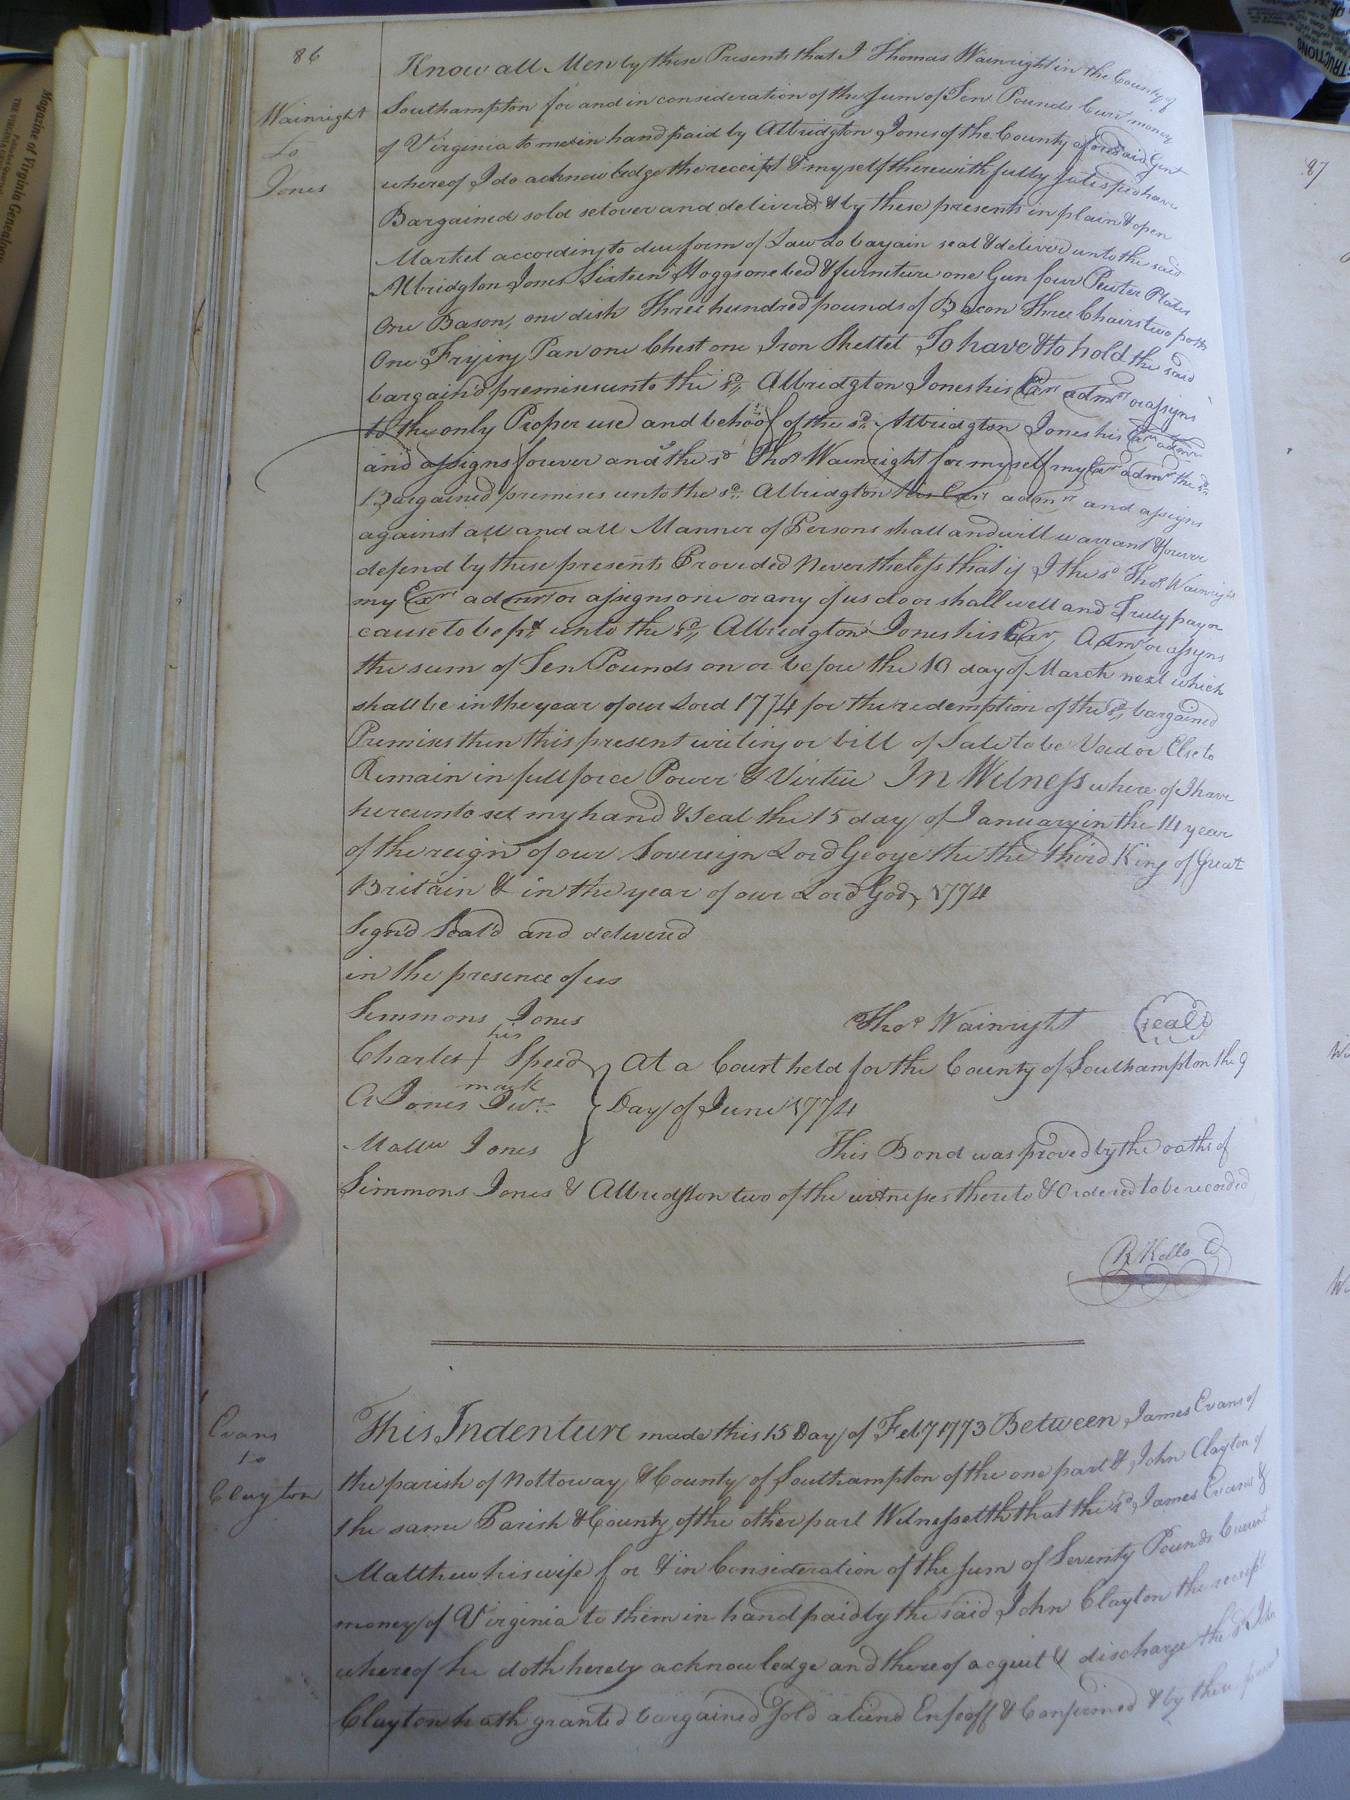 86
Wainright
to
Jones
Know all Men by these Presents that I Thomas Wainright in the County of
Southampton for and in consideration of the sum of Ten Pounds Curr money
of Virginia to me in hand paid by Albridgton Jones of the County aforesaid Gent
whereof I do acknowledge the receipt & myself therewith fully satisfied have
Bargained sold setover and deliverd & by these presents in plain & open
Market according to due form of Law do bargain seal & deliver unto the said
Albridgton Jones Sixteen Hoggs one bed & furniture one Gun four Pewter Plates
One Bason, one dish Three hundred pounds of Bacon Three Chairs two potts
One Frying Pan one Chest one Iron Skettet To have & to hold the said
bargain'd premises unto the sd Albridgton Jones his Exr admrs or assigns
to the only Proper use and behoof of the sd Albridgton Jones his Exr admr
and assigns forever and the sd Thos Wainright for myself my Exr admr the sd
Bargained premises unto the sd Albridgton his Exr admrs and assigns
against all and all Manner of Persons shall and will warrant & forever
defend by these presents Provided Nevertheless that if I the sd Thos Wainright
my Exrs admrs or assigns one or any of us do or shall well and Truly pay or
cause to be pd unto the sd Albridgton Jones his Exr, Admr or assigns
the sum of Ten Pounds on or before the 10 day of March next which
shall be in the year of our Lord 1774 for the redemption of the sd bargained
Premises then this present writing or bill of Sale to be Void or Else to
Remain in full force Power & Virtue In Witness where of I have
hereunto set my hand & seal the 15 day of January in the 14 year
of the reign of our Sovereign Lord George the the third King of Great
Britain & in the year of our Lord God, 1774
Signd Seald and delivered
in the presence of us
Simmons Jones
Thos Wainright (seal)
his
Charles + Speed
mark
At a Court held for the County of Southampton the 9
A Jones Junr
Day of June 1774
Mattw Jones
This Bond was proved by the oaths of
Simmons Jones & Albridgton two of the witnesses thereto & Ordered to be recorded
R Kello C
Evans
to
Clayton
This Indenture made this 15 Day of Feby 1773 Between James Evans of
the parish of Nottoway & County of Southampton of the one part & John Clayton of
the same Parish & County of the other part Witnesseth that the sd James Evans &
Matthew his wife for & in Consideration of the sum of Seventy Pounds Current
money of Virginia to them in hand paid by the said John Clayton the receipt
whereof he doth hereby acknowledge and thereof acquit & discharge the sd John
Clayton hath granted bargained sold aliend Enfeoff & Confirmed & by these
87